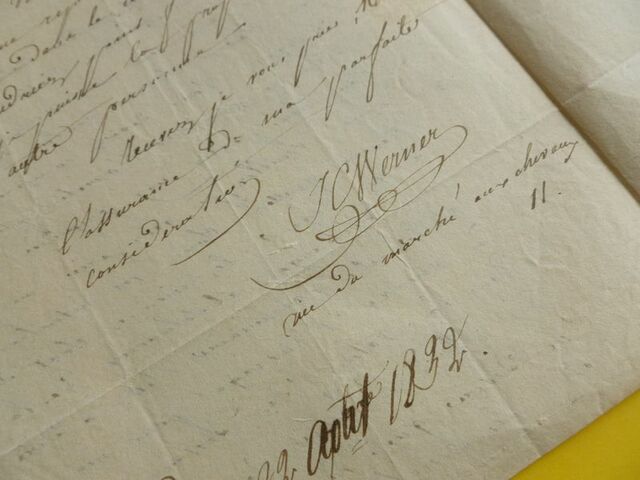 dans le
puisse la
autre personne.
Recevez je vous prie M
l'assurance de ma parfaite
considération
JC Werner
rue du marché aux chevaux
11.
22 Août 1832.